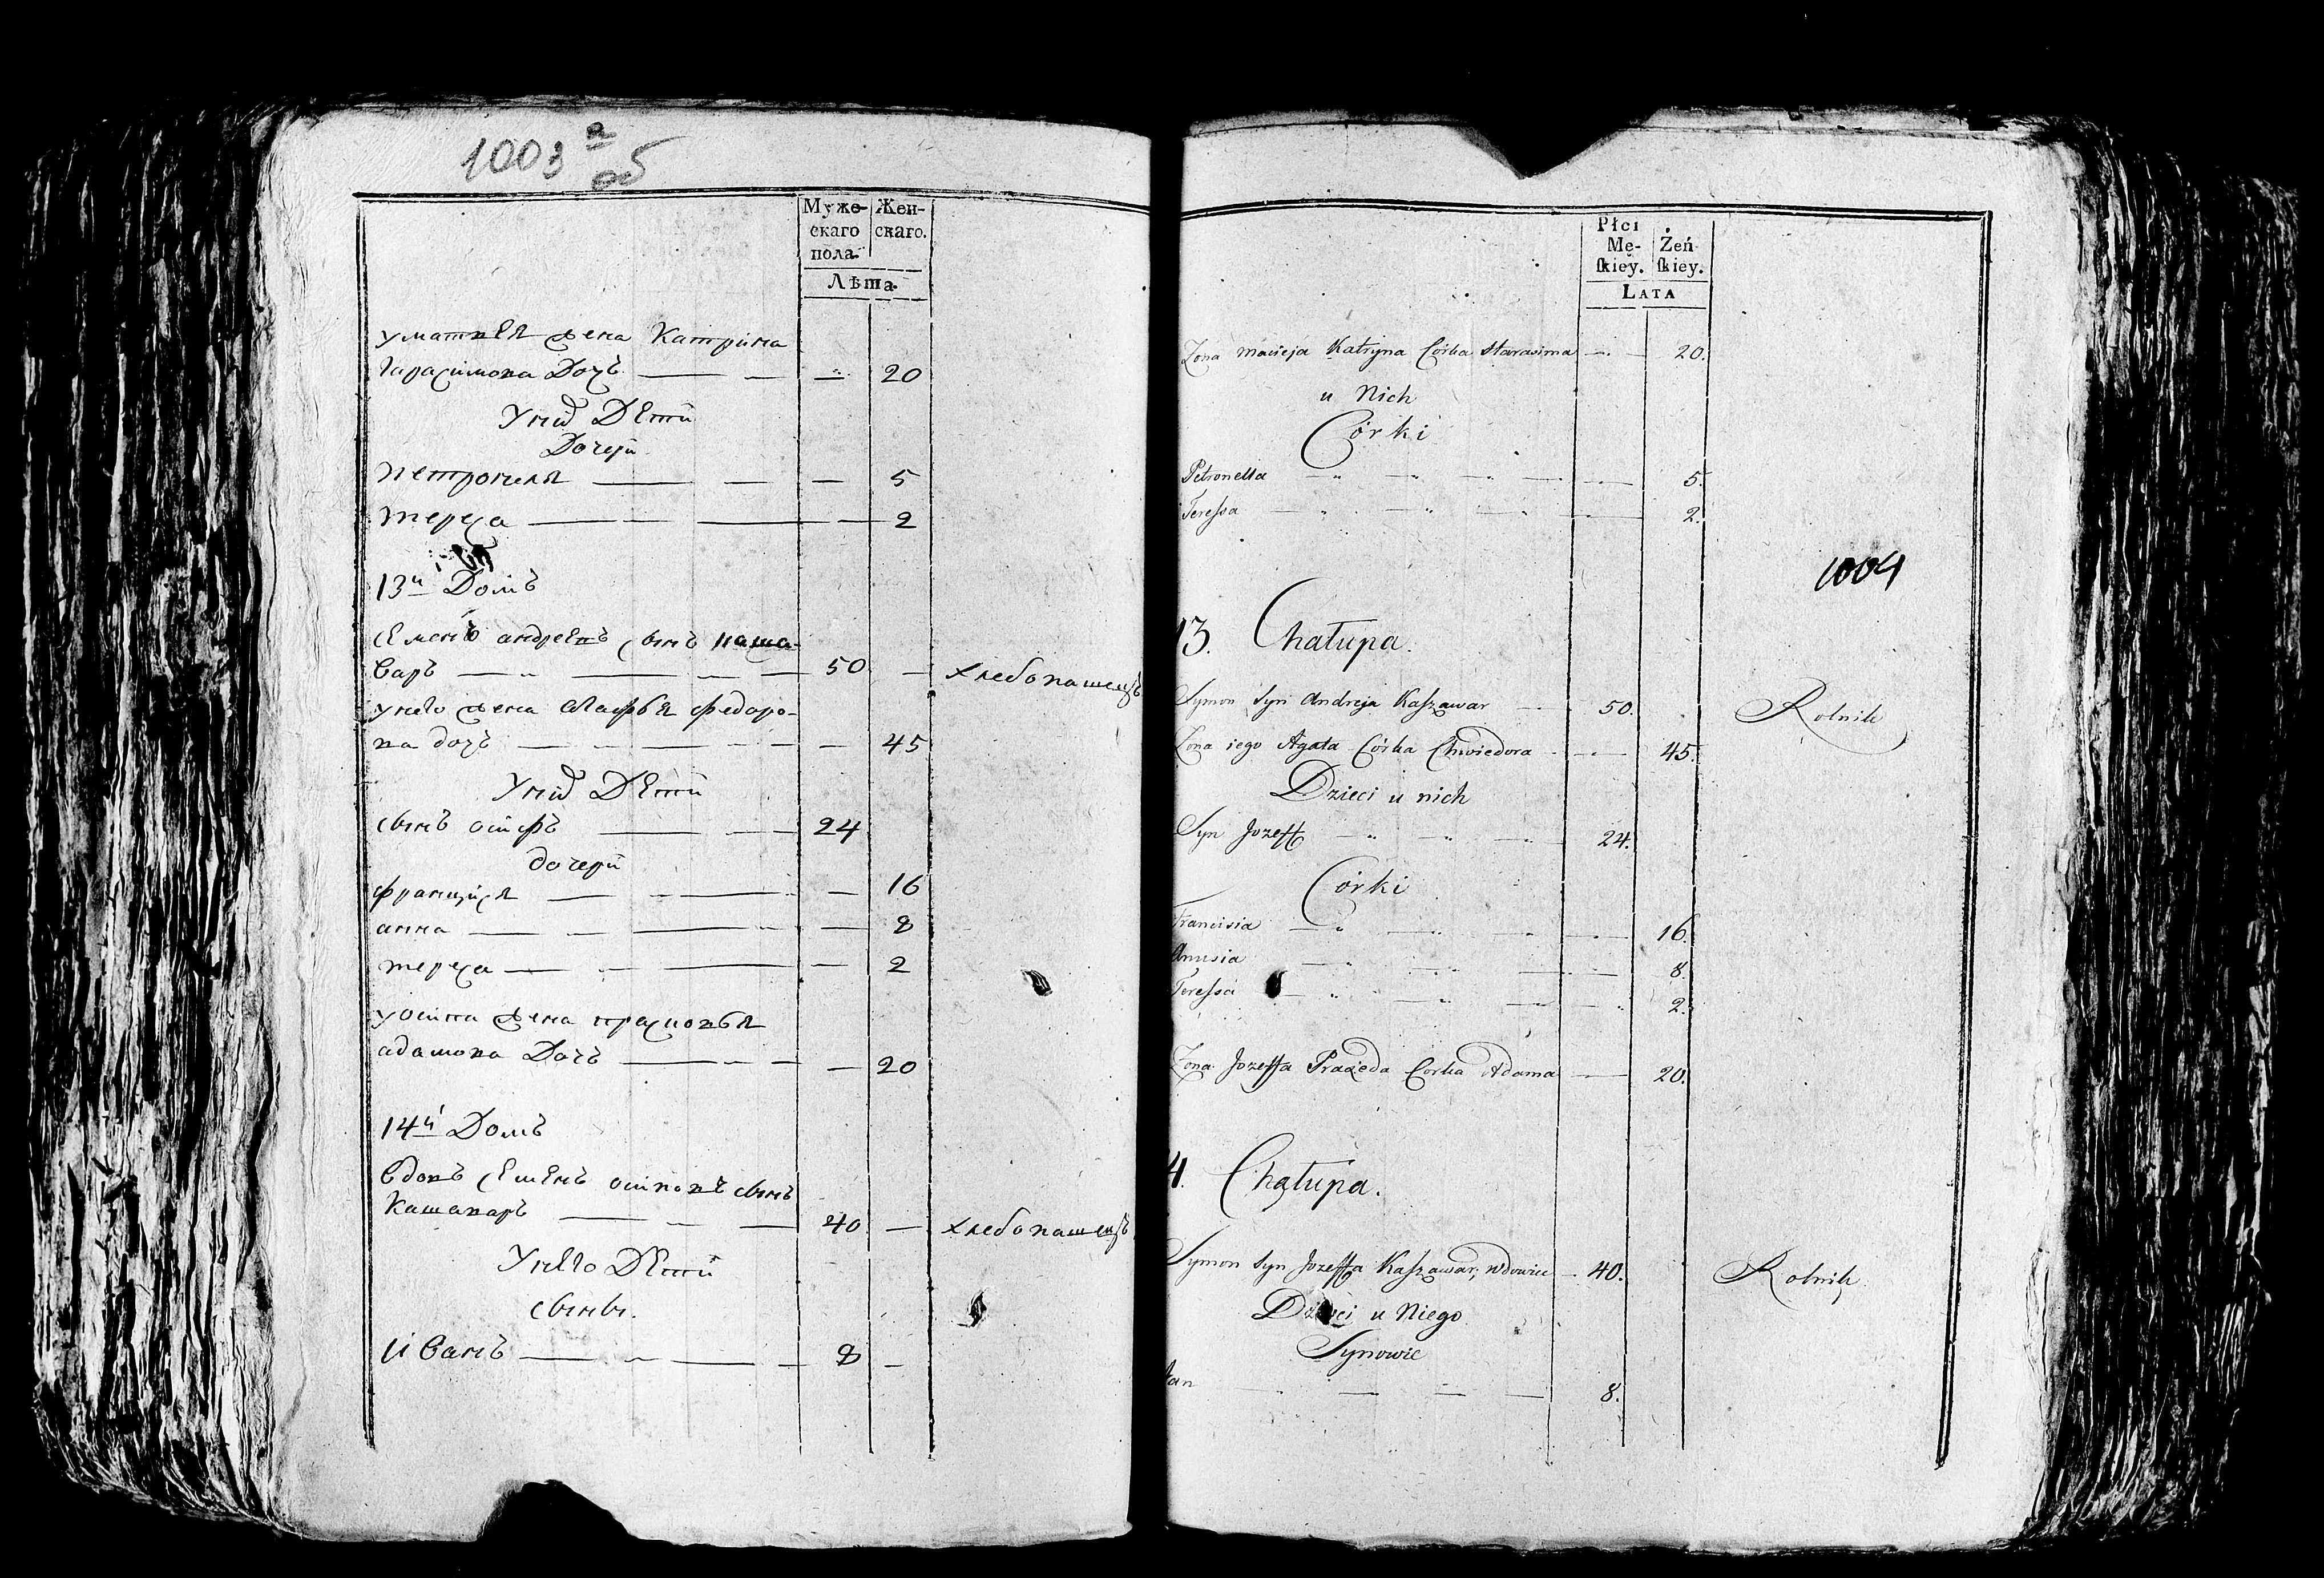 1003 а
об
Муже-
скаго
пола.
Жен-
скаго.
Лѣта.
у матвея жена Катрина
Гарасимова Доч 20
У них Дети
Дочери
петронеля 5
тереса 2
13й Домъ
Семенъ андреевъ сынъ каша-
варъ 50 хлебопашецъ
у него жена агафья федоро-
ва дочъ 45
У них Дети
сынъ осипъ 24
дочери
францися 16
анна 8
тереса 2
у осипа жена прасковья
адамова Дочъ 20
14й Домъ
вдовъ Семенъ осиповъ сынъ
Кашаваръ 40 хлебопашецъ
У него Дети
сыны.
Иванъ 8
Płci
Mę-
ſkiey.
Żeń
ſkiey.
LATA
Żona Macieja Katryna Córka Harasima 20.
u Nich
Córki
Petronella 5.
Teressa 2.
1004
13. Chałupa.
Symon Syn Andreja Kaszawar 50. Rolnik
Żona iego Agata Córka Chwiedora 45.
Dzieci u nich
Syn Jozeff 24.
Córki
Francisia 16.
Anusia 8.
Teressa 2.
Żona Jozeffa Praxeda Corka Adama 20.
4. Chałupa.
Symon Syn Jozeffa Kaszawar, wdowiec 40. Rolnik
Dzieci u Niego
Synowie
Jan 8.